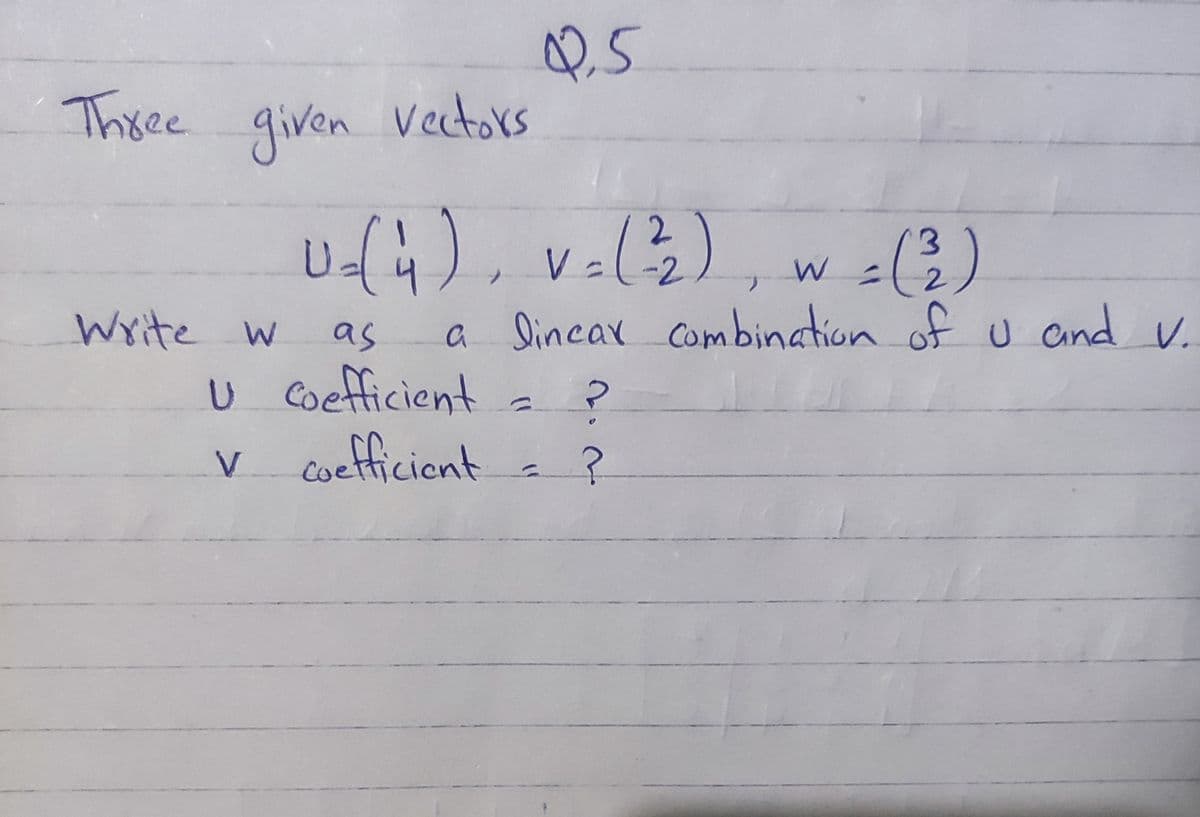 Q.5
Three given vectors
U=(1 4), v=(2 -2), w=(3 2)
Write w as a linear combination of u and v.
U coefficient = ?
V coefficient = ?